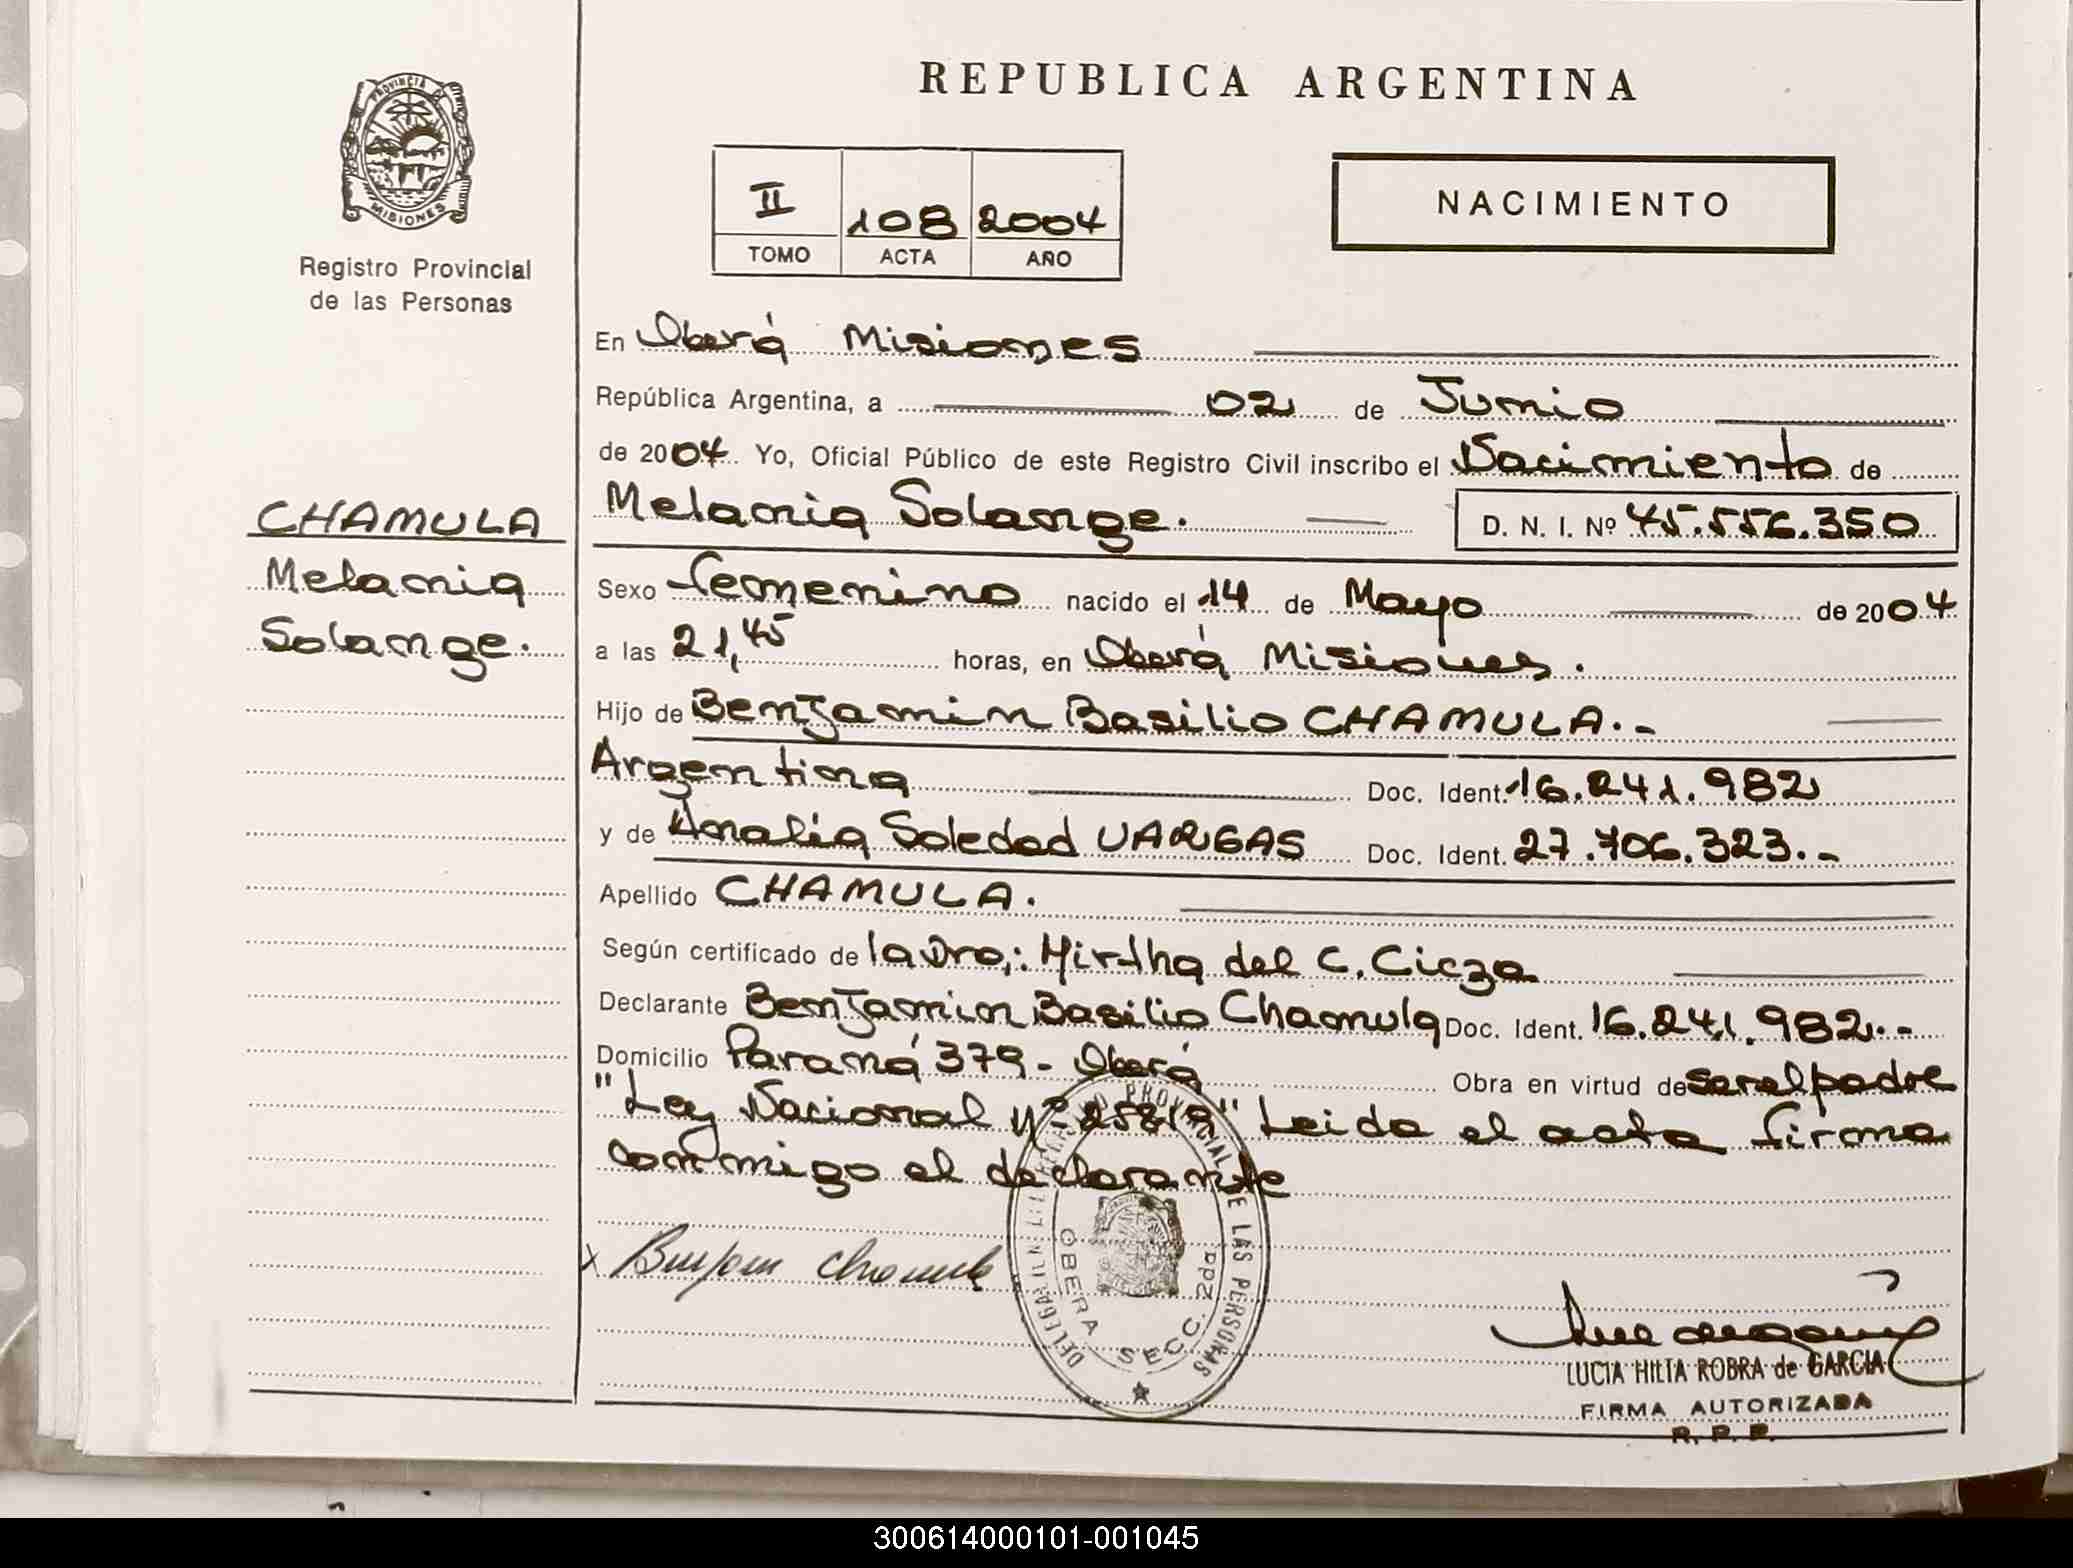 REPUBLICA ARGENTINA
PROVINCIA DE
MISIONES
Registro Provincial
de las Personas
II 108 2004
TOMO ACTA AÑO
NACIMIENTO
CHAMULA
Melania
Solange.
En Oberá Misiones
República Argentina, a 02 de Junio
de 2004 Yo, Oficial Público de este Registro Civil inscribo el Nacimiento de
Melania Solange. D. N. I. Nº 45.556.350
Sexo femenino nacido el 14 de Mayo de 2004
a las 21,45 horas, en Oberá Misiones.
Hijo de Benjamin Basilio CHAMULA.-
Argentina Doc. Ident. 16.241.982
y de Analia Soledad VARGAS Doc. Ident. 27.706.323.-
Apellido CHAMULA.
Según certificado de la Dra.: Mirtha del C. Cicza
Declarante Benjamin Basilio Chamula Doc. Ident. 16.241.982.-
Domicilio Paraná 379 - Oberá Obra en virtud de ser el padre
"Ley Nacional Nº 25819" Leida el acta firma
conmigo el declarante
x Benjamin Chamula
REGISTRO PROVINCIAL DE LAS PERSONAS
OBERA SECC. 2da
LUCIA HILIA ROBRA de GARCIA
FIRMA AUTORIZADA
R. P. P.
300614000101-001045